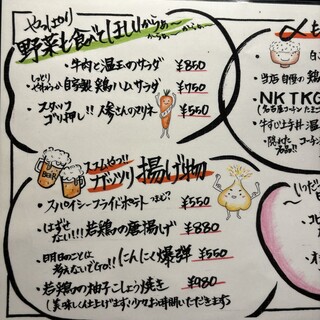 やっぱり
野菜も食べてほしいからぁ〜
からぁ〜 からぁ〜
・牛肉と温玉のサラダ ¥850
・しっとり やわらかい 自家製 鶏ハムサラダ ¥750
・スタッフ ゴリ押し!! 人参さんのマリネ ¥550
BEER
ススム ガッツリ 揚げ物
・スパイシーフライドポテト ¥550
・はずせない!!! 若鶏の唐揚げ ¥880
・明日のことは 考えないでGO!! にんにく爆弾 ¥550
・若鶏の柚子こしょう焼き ¥980
(美味しく仕上げます:少々お時間いただきます)
も
当店自慢の 鶏
NK TKG
(名古屋コーチン たまご
牛すじ土手丼 温
・隠れた 名品!! コーチン